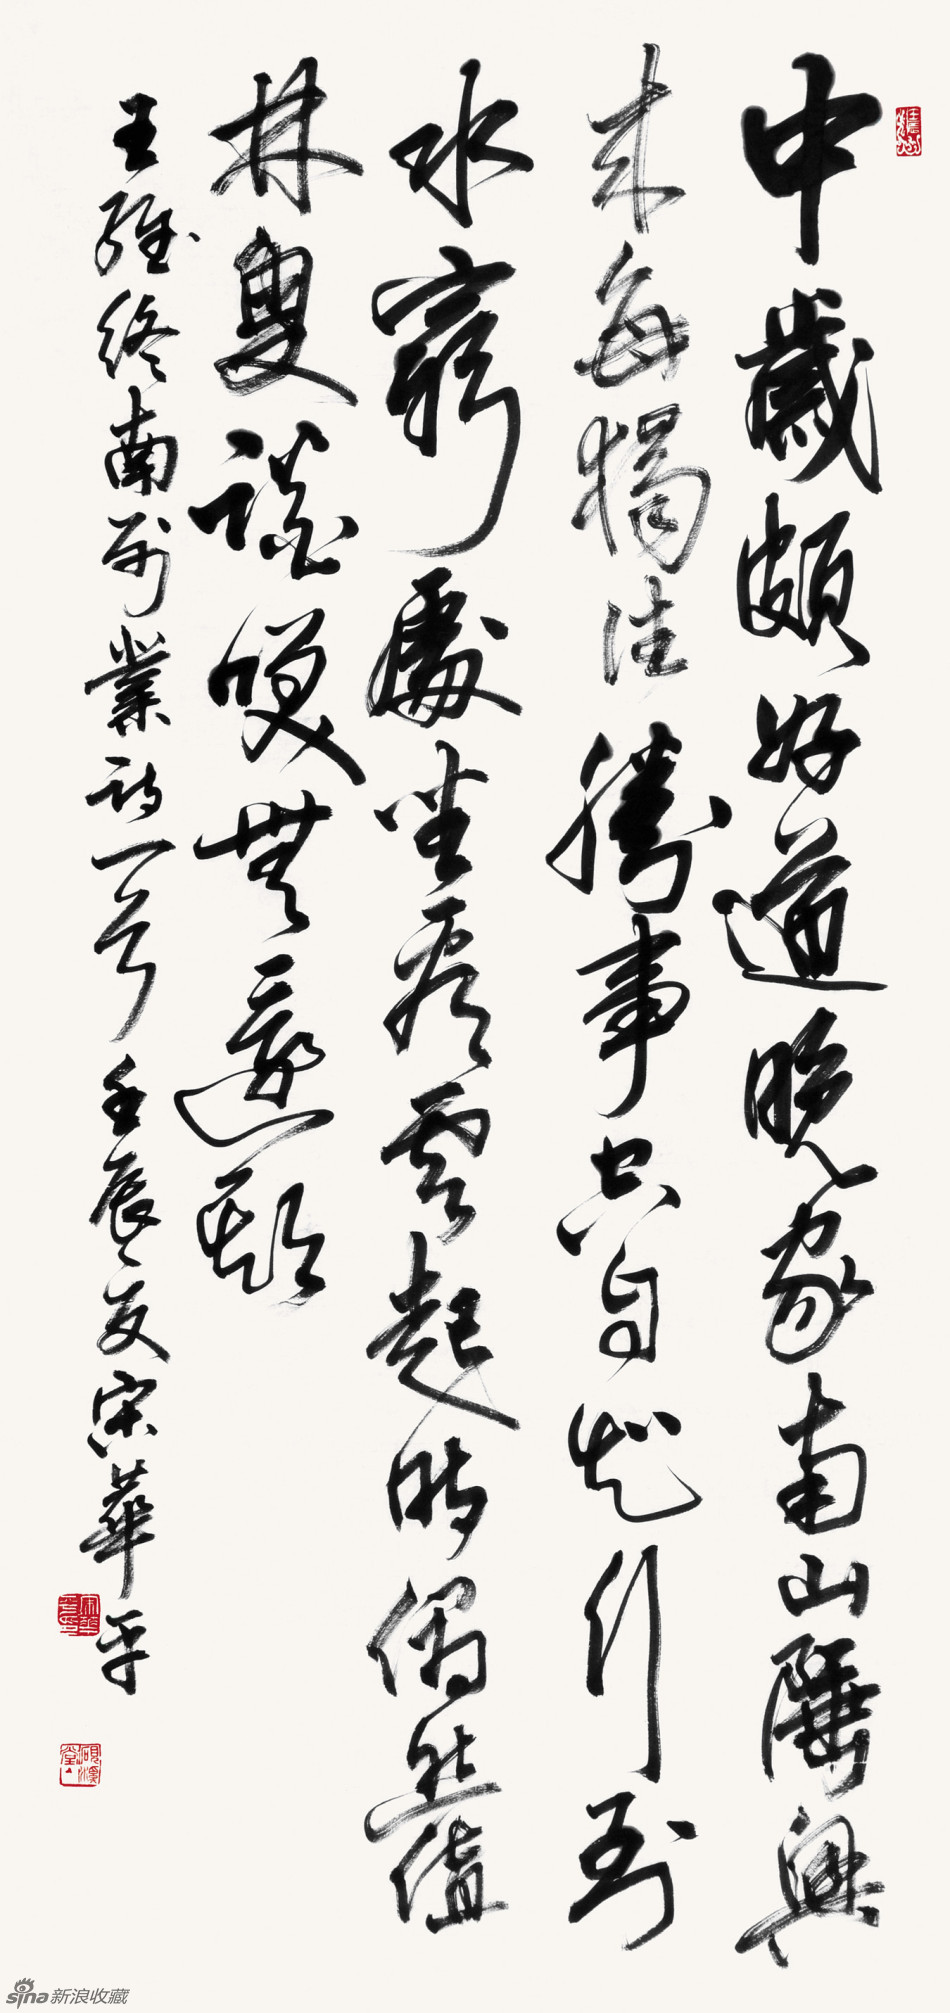 中歲頗好道晚家南山陲興
来每獨往勝事空自知行到
水窮處坐看雲起時偶然值
林叟談咲無還期
王維終南別業詩一首壬辰夏宋華平
sina新浪收藏